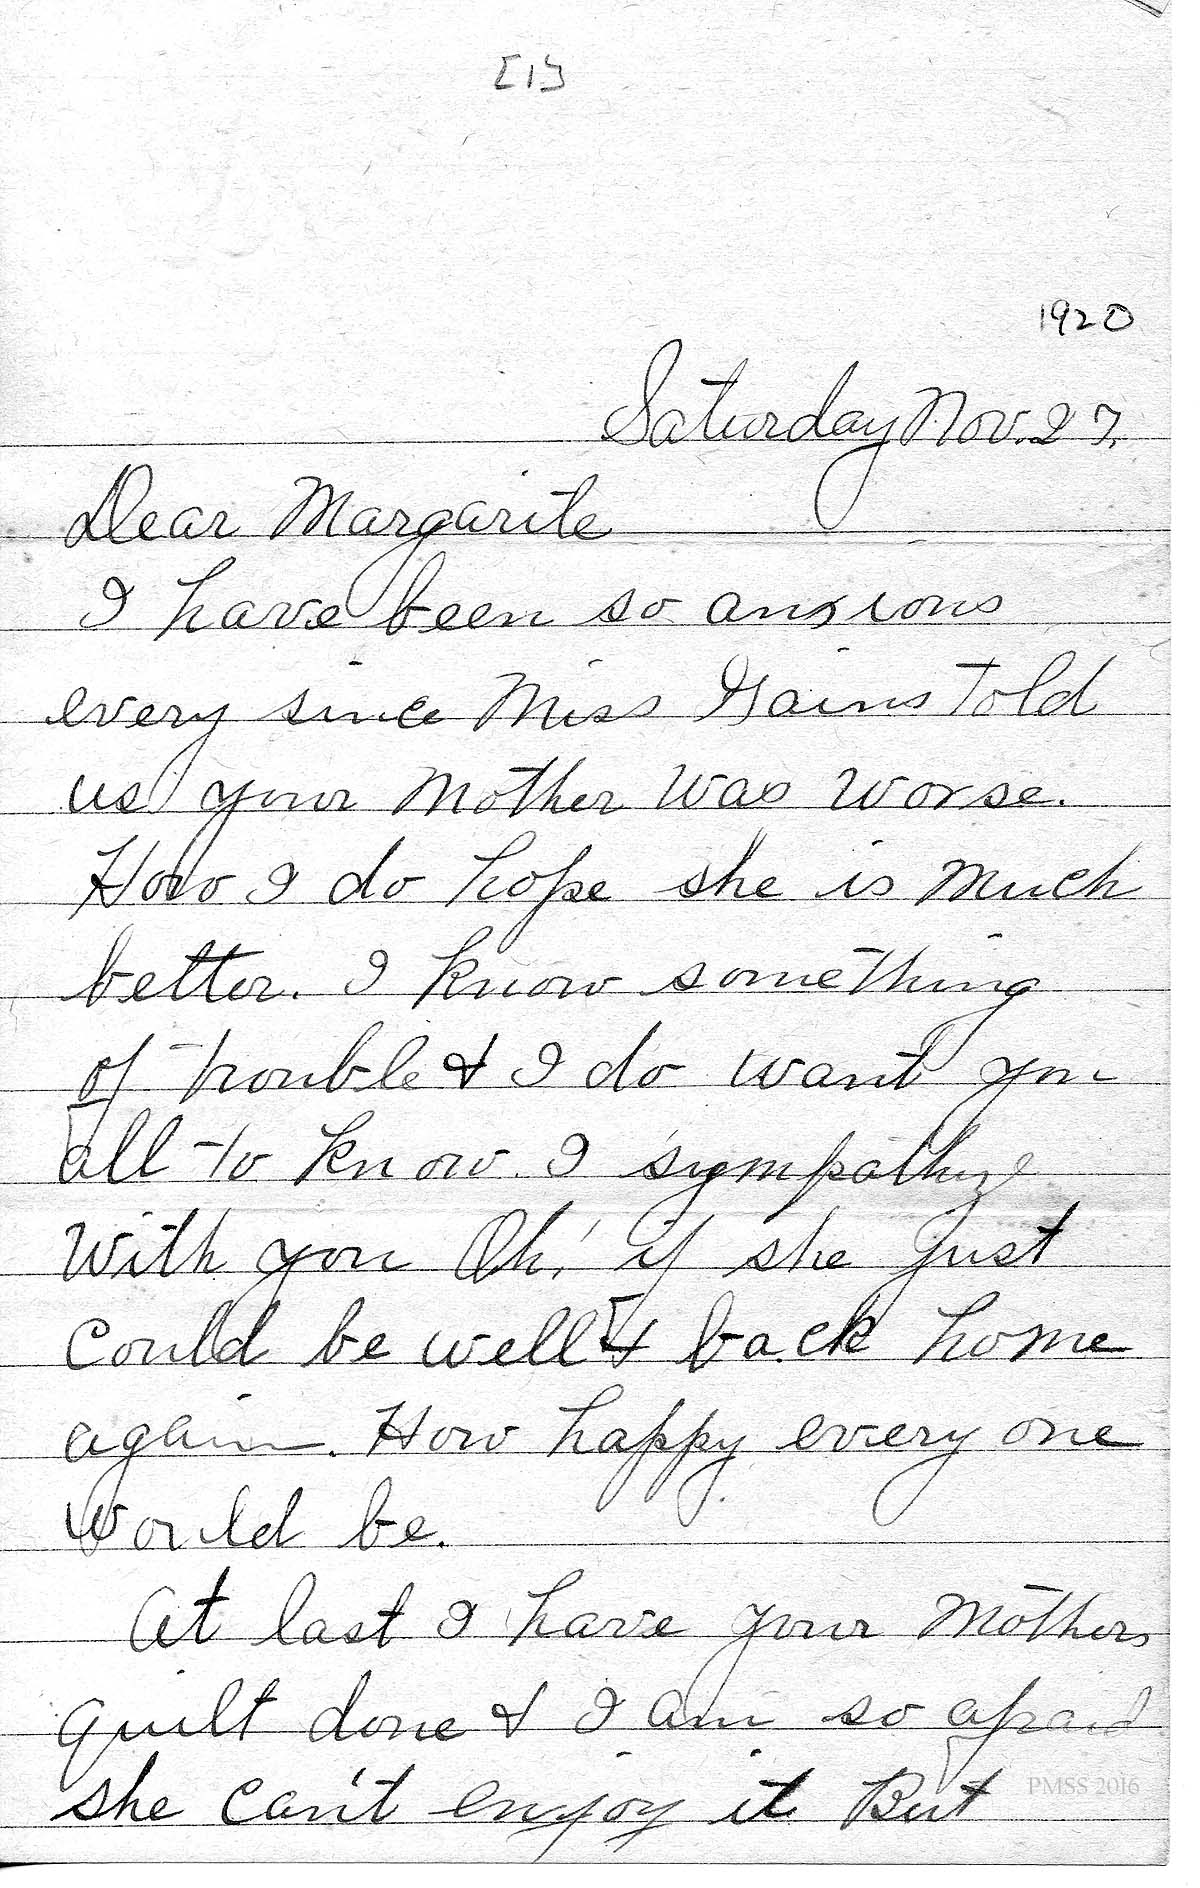 [1]
1920
Saturday Nov. 27.
Dear Margarite
I have been so anxious
every since Miss Gains told
us your Mother was worse.
How I do hope she is much
better. I know something
of trouble & I do want you
all to know I sympathize
with you Oh! if she just
could be well & back home
again. How happy every one
would be.
At last I have your Mothers
quilt done & I am so afraid
she can't enjoy it But
PMSS 2016